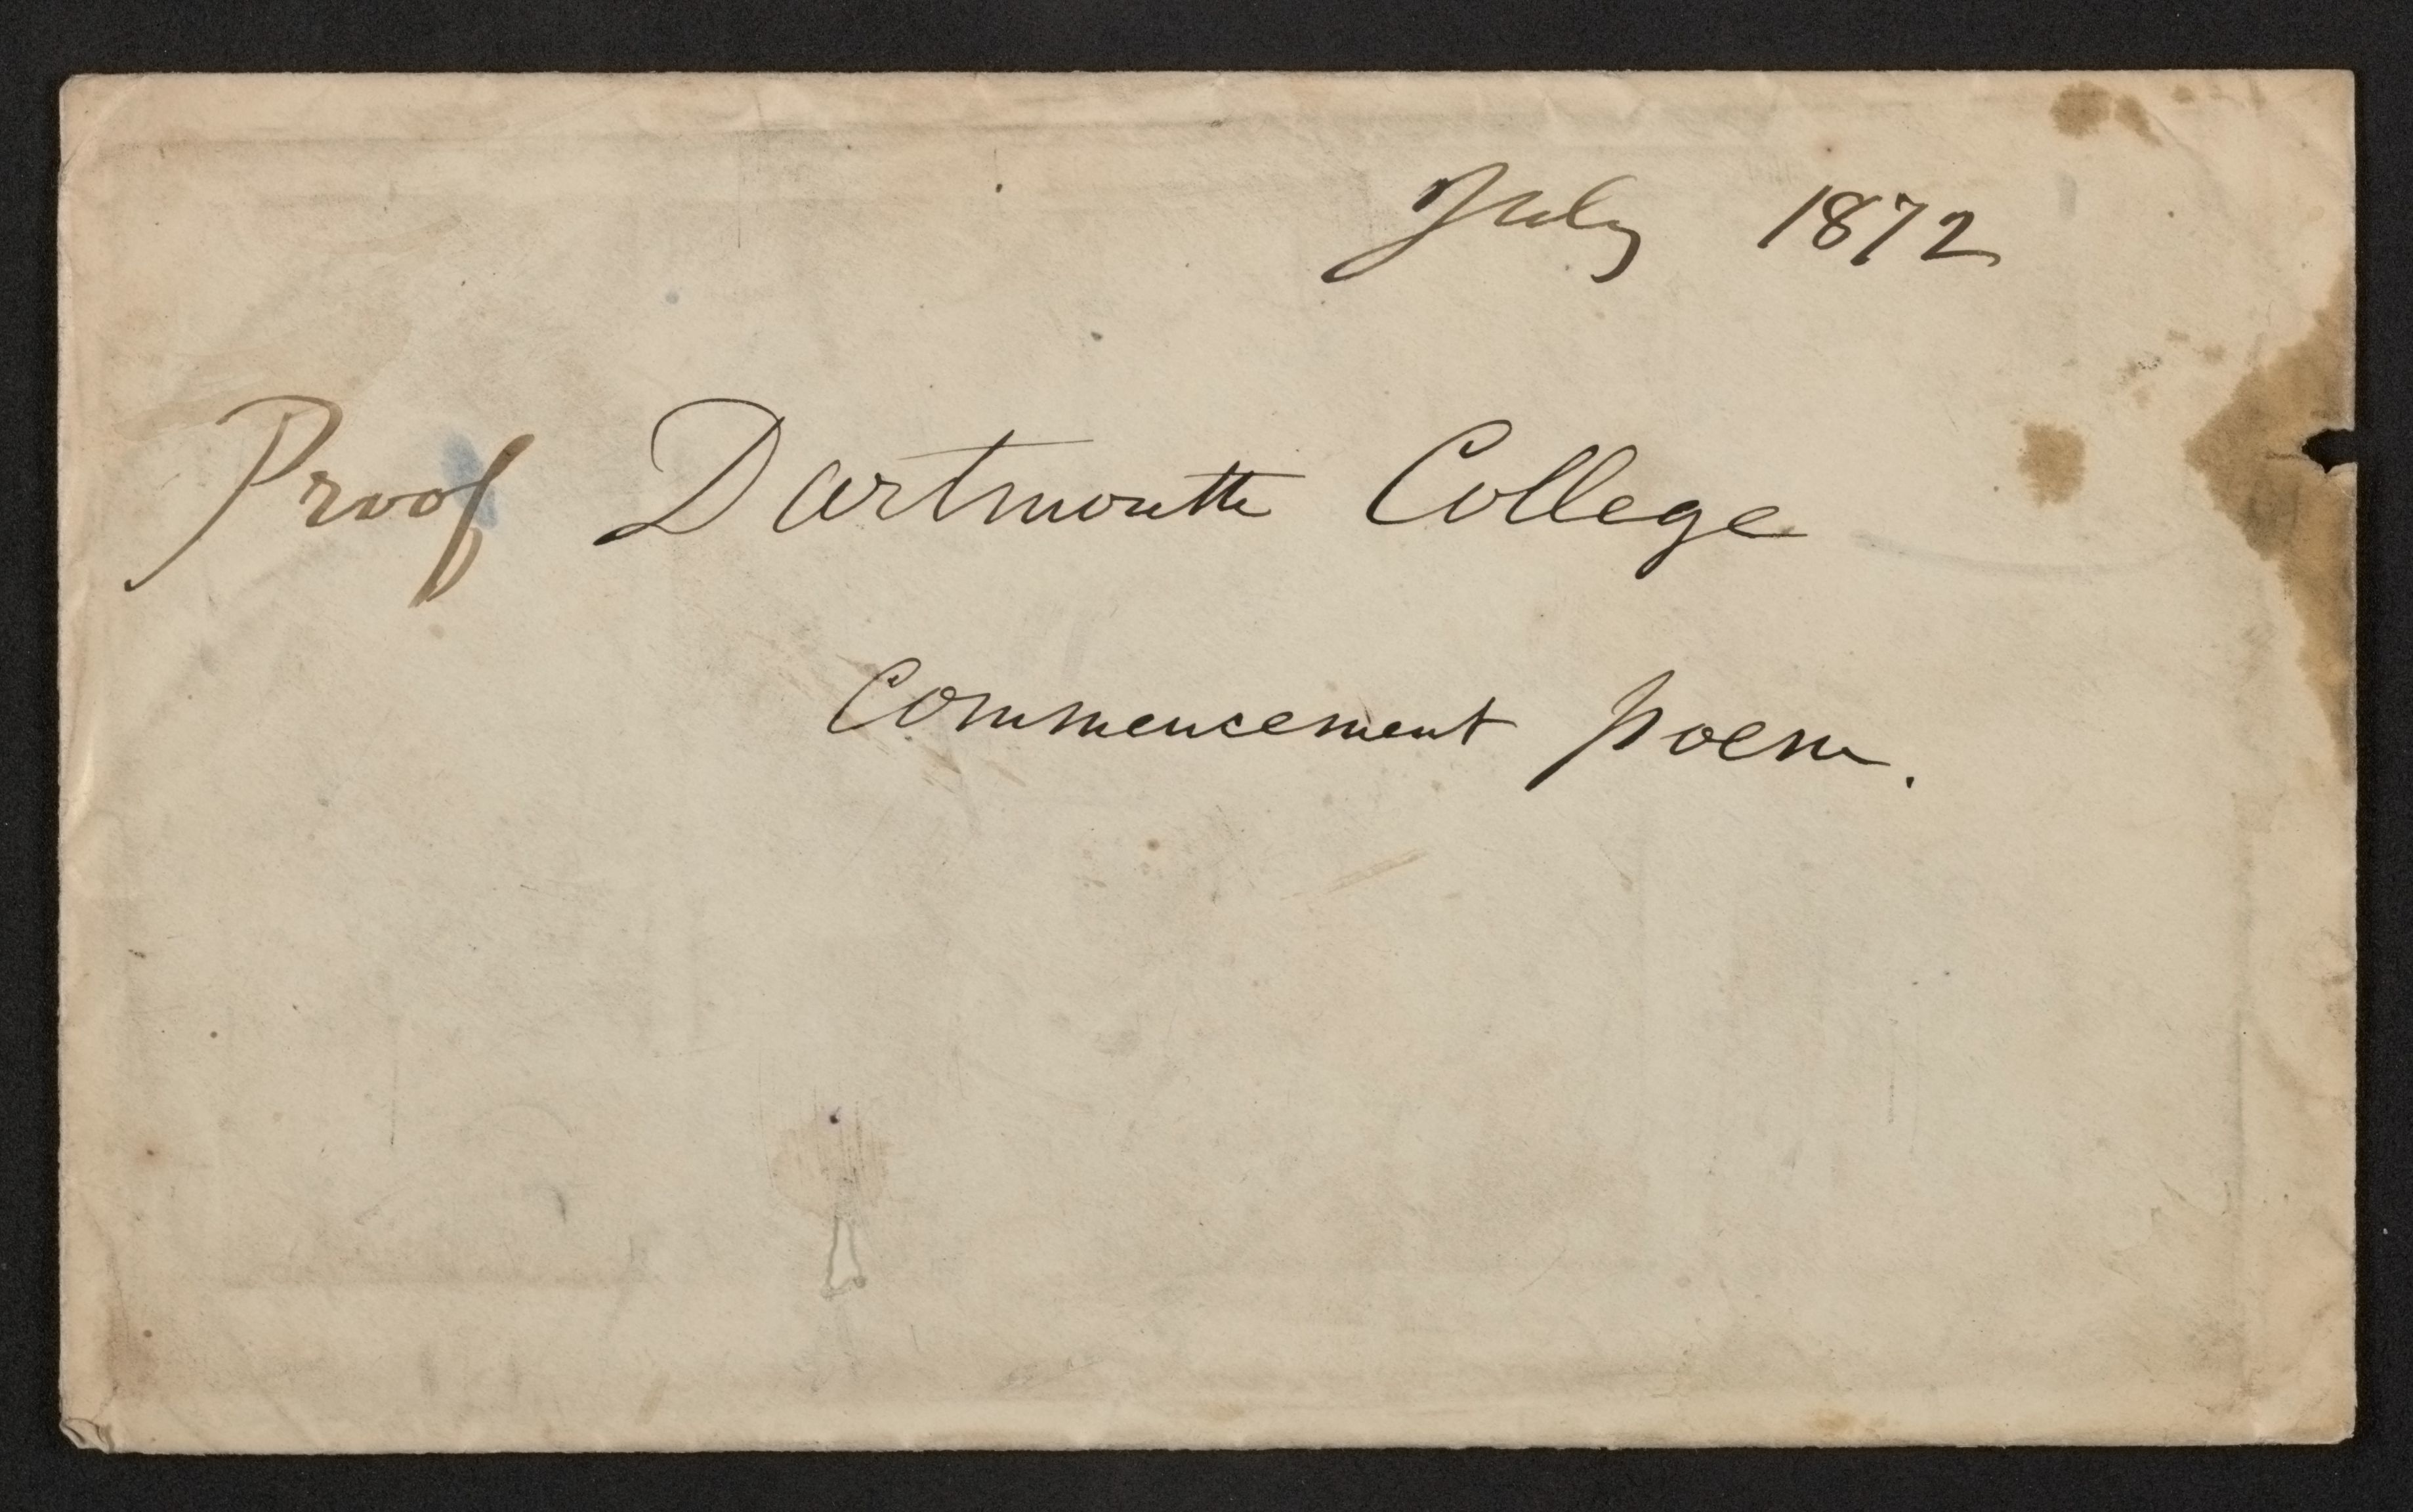 July 1872
Proof Dartmouth College
Commencement poem.